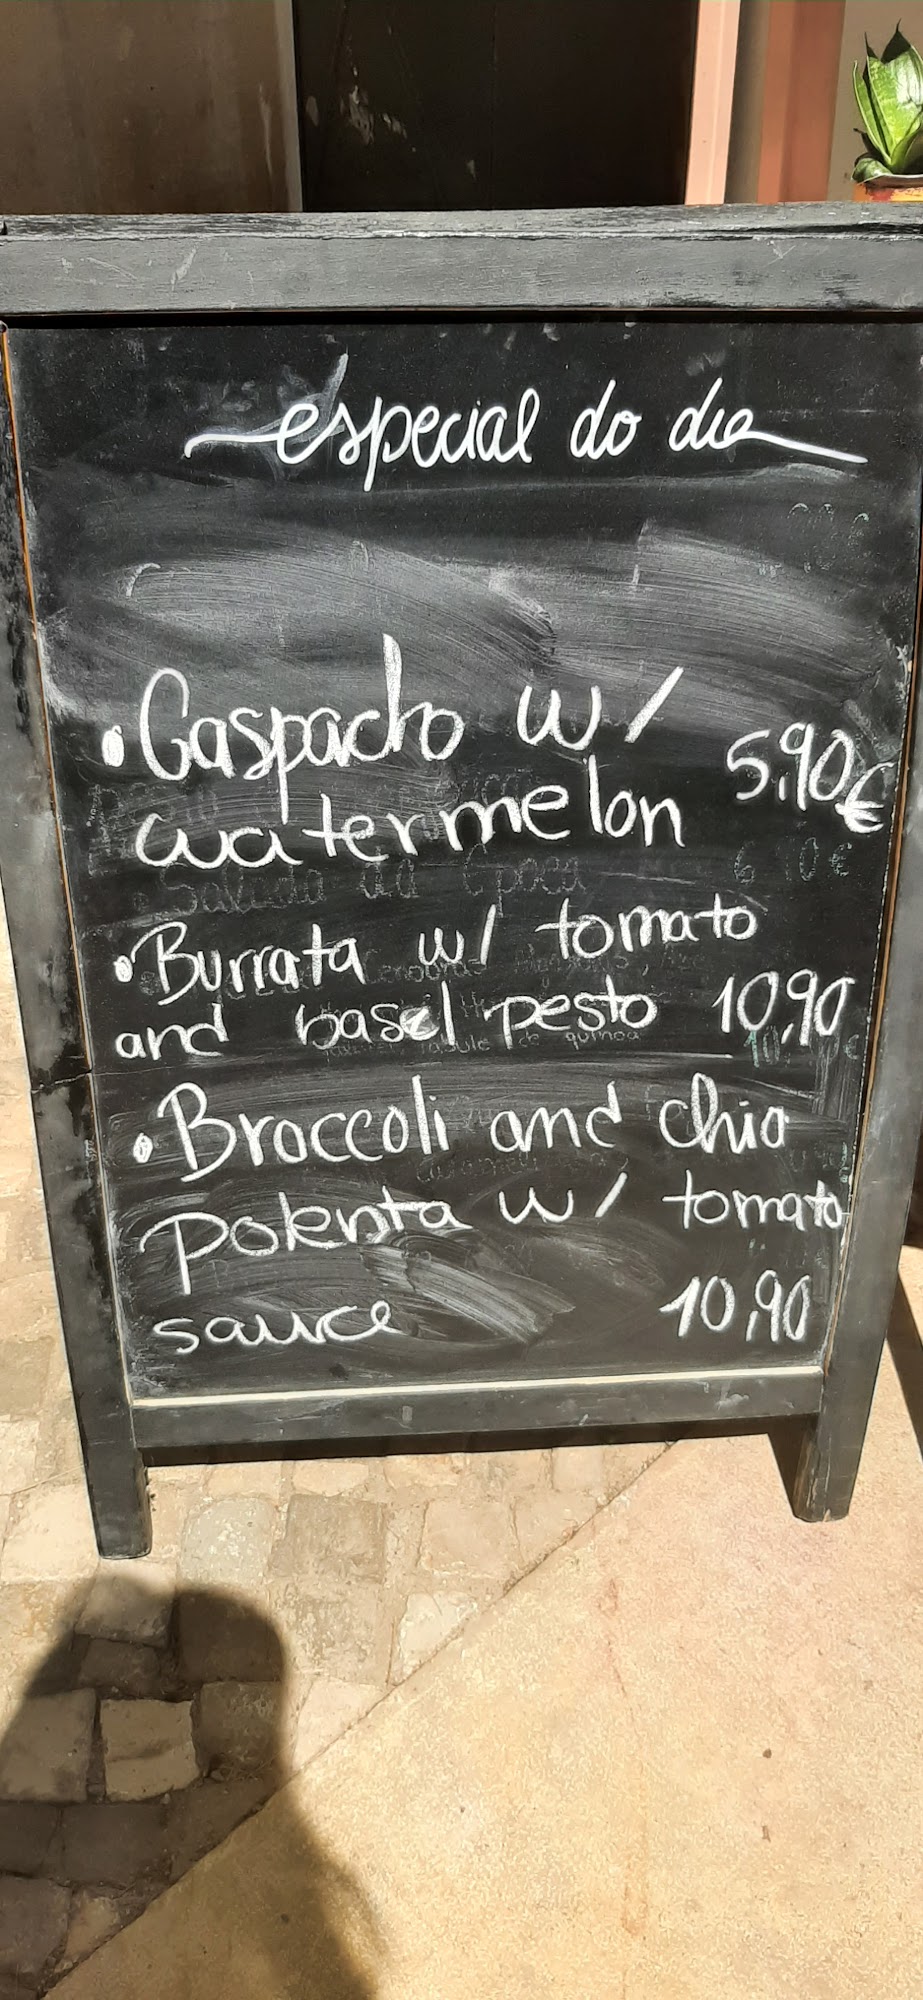 especial do dia
• Gaspacho w/
watermelon 5,90€
Salada da Época 6,90€
• Burrata w/ tomato
and basel pesto 10,90
• Broccoli and chia
Polenta w/ tomato
sauce 10,90